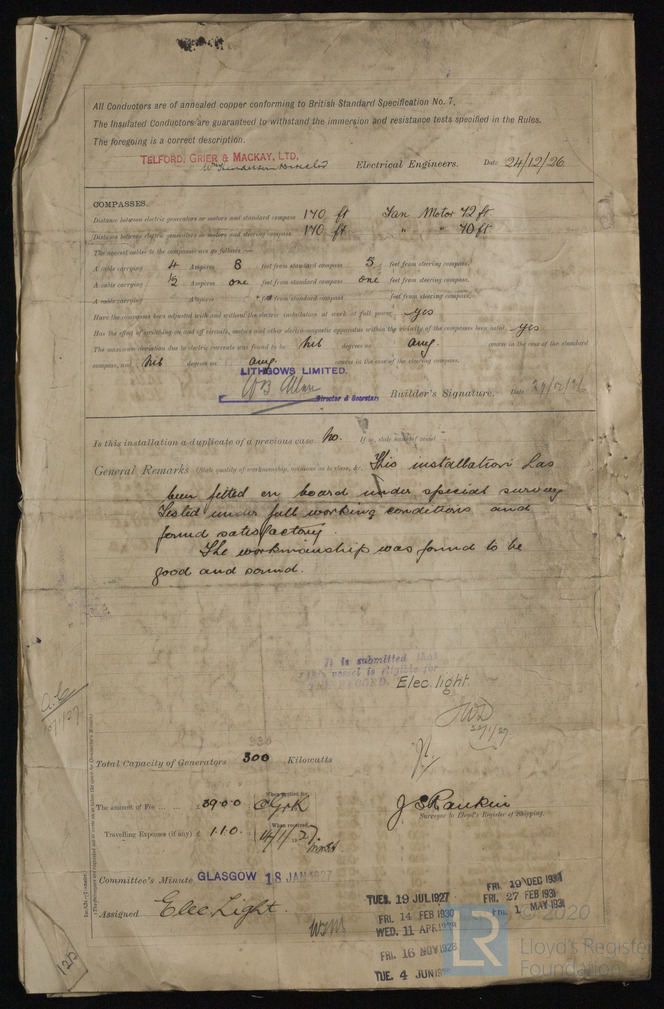 All Conductors are of annealed copper conforming to British Standard Specification No. 7.
The Insulated Conductors are guaranteed to withstand the immersion and resistance tests specified in the Rules.
The foregoing is a correct description.
TELFORD, GRIER & MACKAY, LTD.
Electrical Engineers. Date 24/12/26
COMPASSES.
Distance between electric generators or motors and standard compass 170 ft Fan Motor 72 ft
Distance between electric generators or motors and steering compass 170 ft " " 70 ft
The nearest cables to the compasses are as follows:—
A cable carrying 4 Amperes 8 feet from standard compass 5 feet from steering compass.
A cable carrying 1/2 Amperes one feet from standard compass one feet from steering compass.
A cable carrying Amperes feet from standard compass feet from steering compass.
Have the compasses been adjusted with and without the electric installation at work at full power yes
Has the effect of switching on and off circuits, motors and other electro-magnetic apparatus within the vicinity of the compasses been noted yes
The maximum deviation due to electric currents was found to be nil degrees on any course in the case of the standard
compass, and nil degrees on any course in the case of the steering compass.
LITHGOWS LIMITED.
Director & Secretary Builder's Signature. Date
Is this installation a duplicate of a previous case no. If so, state name of vessel
General Remarks (State quality of workmanship, opinions as to class, &c. This installation has
been fitted on board under special survey
Tested under full working conditions and
found satisfactory.
The workmanship was found to be
good and sound.
It is submitted that
this vessel is eligible for
THE RECORD. Elec. light.
Total Capacity of Generators 300 Kilowatts
The amount of Fee £39.0.0
When applied for,
Travelling Expenses (if any) £ 1.1.0.
When received,
14/1/27
J S Rankin
Surveyor to Lloyd's Register of Shipping.
Committee's Minute GLASGOW 18 JAN 1927
Assigned Elec. Light.
TUES. 19 JUL 1927
FRI. 14 FEB 1930
WED. 11 APR
FRI. 16 NOV 1928
TUE. 4 JUN
FRI. 19 DEC
FRI. 27 FEB 1931
FRI. 1 MAY 1931
LR
© 2020
Lloyd's Register
Foundation